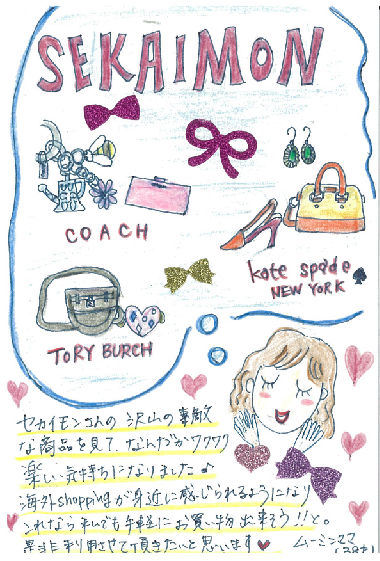 SEKAIMON
COACH
kate spade
NEW YORK
TORY BURCH
セカイモンさんの沢山の素敵
な商品を見て、なんだかワクワク
楽しい気持ちになりました♪
海外shoppingが身近に感じられるようになり
これなら私でも手軽にお買い物出来そう!!と。
是非利用させて頂きたいと思います♥
ムーミンママ